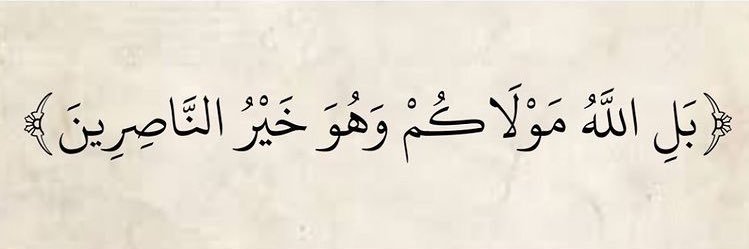 ﴿بَلِ اللَّهُ مَوْلَاكُمْ وَهُوَ خَيْرُ النَّاصِرِينَ﴾